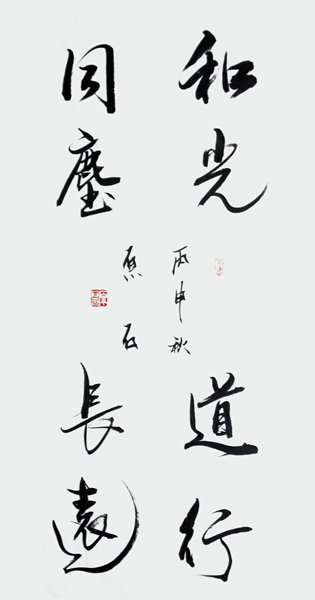 和光
同塵
丙申秋
石
道行
長遠